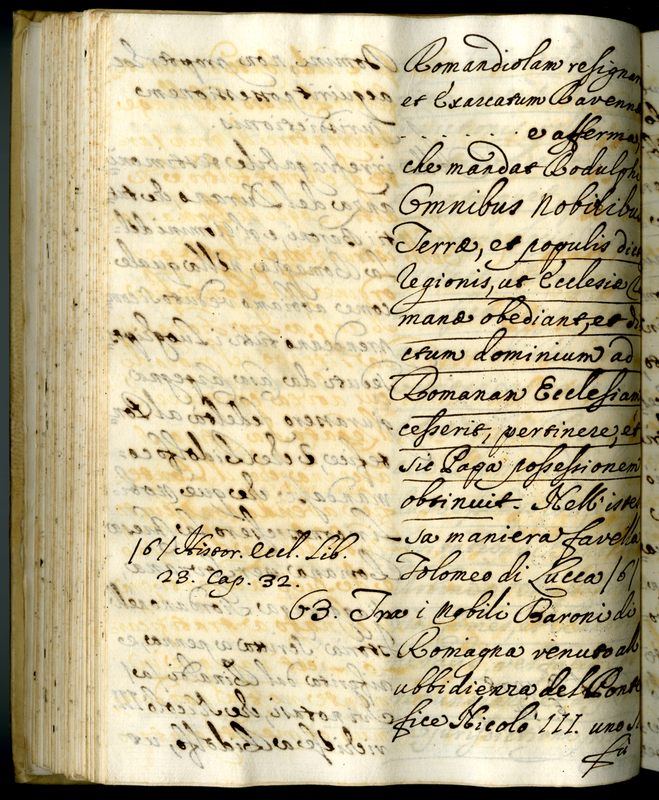 Romandiolam resignan
et Exarcatum Ravenn
. . . . . . . e afferma,
che mandat Rodulph
Omnibus Nobilibu
Terræ, et populis dict
regionis, ut Ecclesiæ Ro
manæ obediant, et di
ctum dominium ad
Romanam Ecclesiam
cesserit, pertinere, et
sic Papa possessionem
obtinuit. Nell' istes
sa maniera favella
Tolomeo di Lucca /6/
/6/ Histor. Eccl. Lib.
23. Cap. 32.
63. Tra i nobili Baroni di
Romagna venuto all
ubbidienza del Ponte
fice Nicolò III. uno
fù